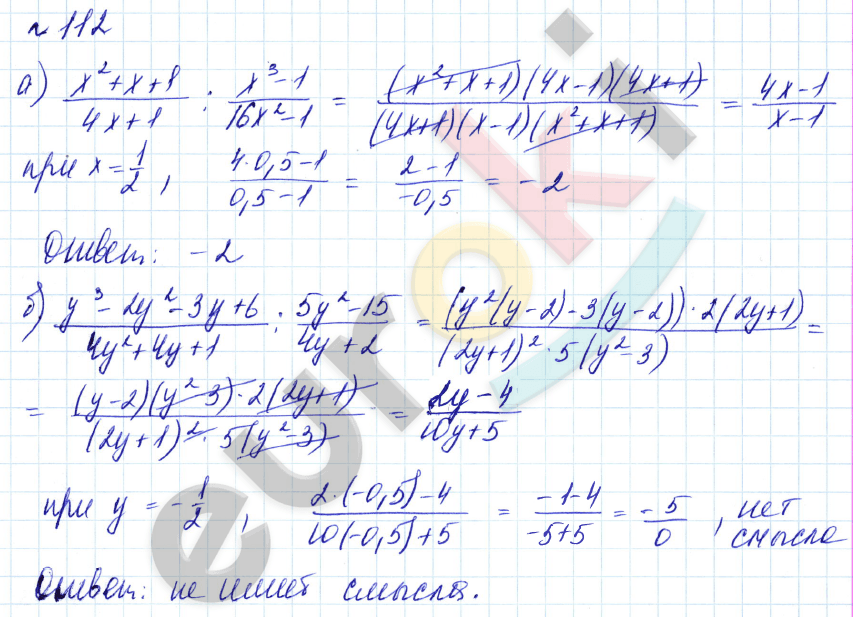 № 112
а) (x²+x+1)/(4x+1) : (x³-1)/(16x²-1) = ((x²+x+1)(4x-1)(4x+1))/((4x+1)(x-1)(x²+x+1)) = (4x-1)/(x-1)
при x = 1/2, (4·0,5-1)/(0,5-1) = (2-1)/(-0,5) = -2
Ответ: -2
б) (y³-2y²-3y+6)/(4y²+4y+1) : (5y²-15)/(4y+2) = ((y²(y-2)-3(y-2))·2(2y+1))/((2y+1)²·5(y²-3)) =
= ((y-2)(y²-3)·2(2y+1))/((2y+1)²·5(y²-3)) = (2y-4)/(10y+5)
при y = -1/2, (2·(-0,5)-4)/(10(-0,5)+5) = (-1-4)/(-5+5) = -5/0, нет смысла
Ответ: не имеет смысла.
euroki